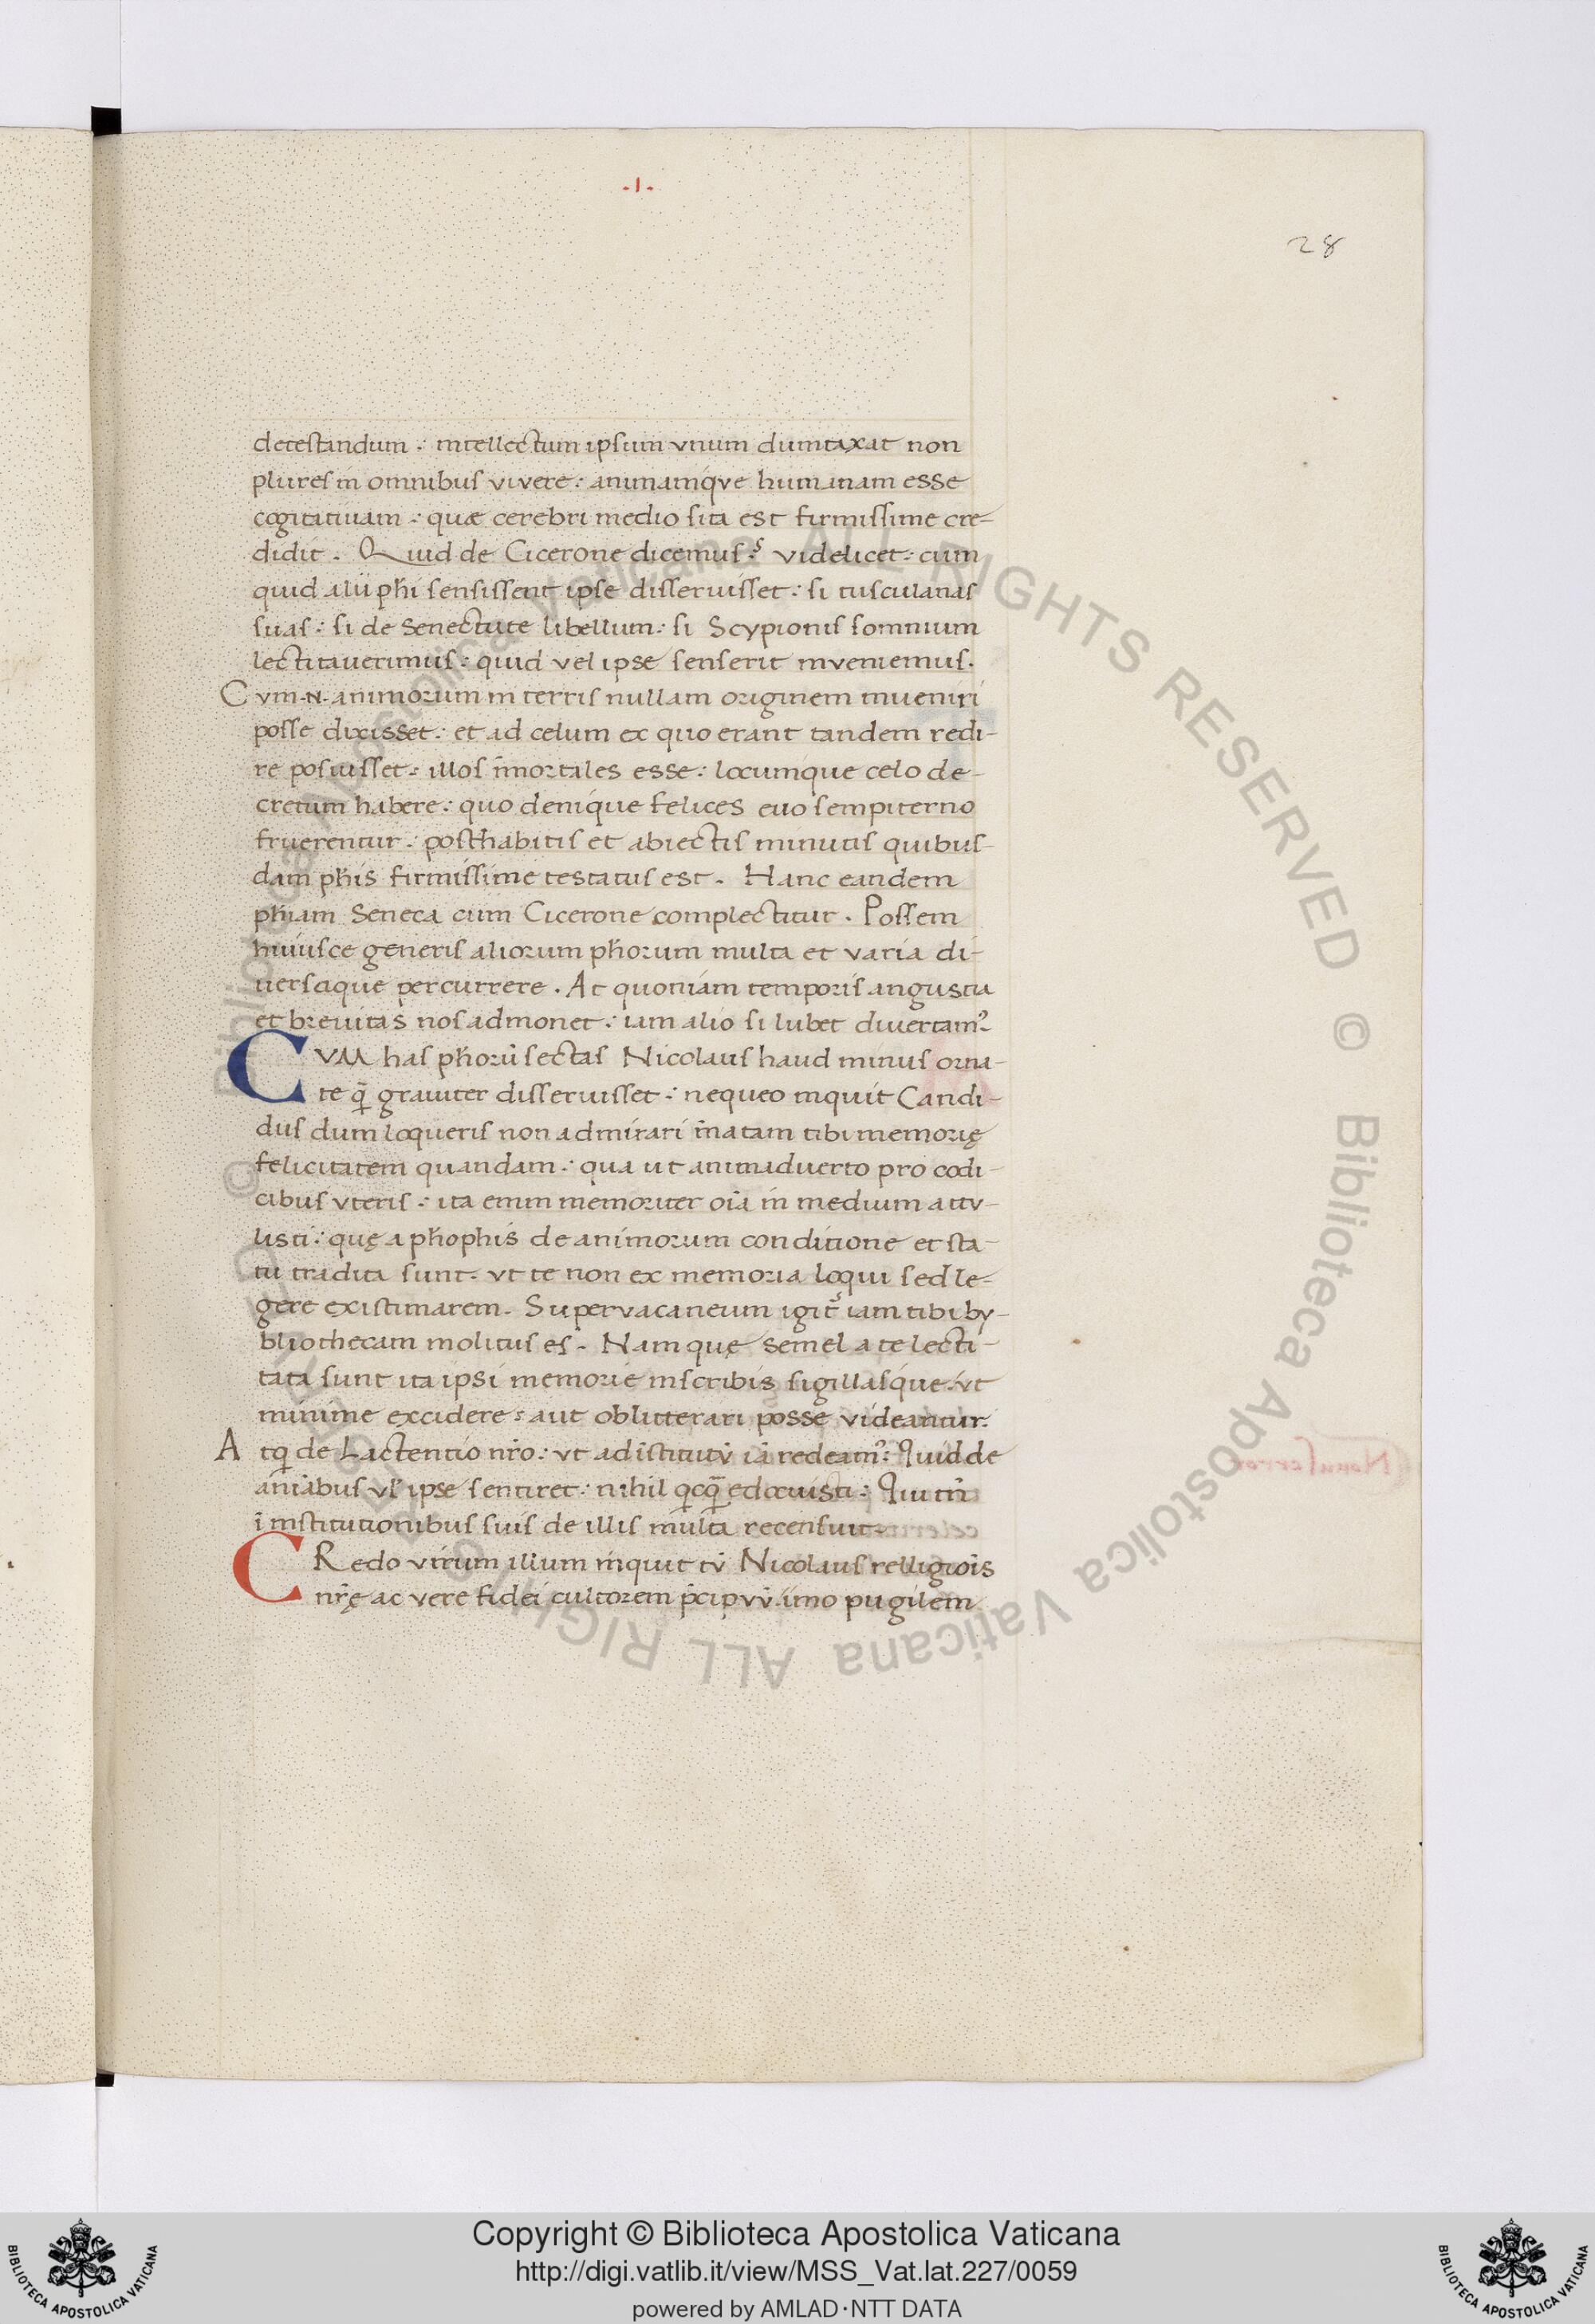 .I.
28
detestandum : intellectum ipsum vnum dumtaxat non
plures in omnibus vivere : animamqve humanam esse
cogitatiuam : quæ cerebri medio sita est firmissime cre-
didit . Quid de Cicerone dicemus? videlicet : cum
quid alii phi sensissent ipse disseruisset : si tusculanas
suas : si de Senectute libellum : si Scypionis somnium
lectitauerimus : quid vel ipse senserit inveniemus .
Cvm .N. animorum in terris nullam originem inueniri
posse dixisset : et ad celum ex quo erant tandem redi-
re posuisset : illos īmortales esse : locumque celo de-
cretum habere : quo denique felices euo sempiterno
frverentur : posthabitis et abiectis minutis quibus-
dam phis firmissime testatus est . Hanc eandem
phiam Seneca cum Cicerone complectitur . Possem
huiusce generis aliorum phorum multa et varia di-
uersaque percurrere . At quoniam temporis angustia
et breuitas nos admonet : iam alio si lubet diuertamꝰ
CVM has phorū sectas Nicolaus haud minus orna-
te q̄ grauiter disseruisset : nequeo inquit Candi-
dus dum loqueris non admirari īnatam tibi memorię
felicitatem quandam : qua ut animaduerto pro codi-
cibus vteris : ita enim memoriter oīa in medium attv-
listi : quę a phophis de animorum conditione et sta-
tu tradita sunt . vt te non ex memoria loqui sed le-
gere existimarem . Supervacaneum igit᷑ iam tibi by-
bliothecam molitus es . Nam quę semel a te lecti-
tata sunt ita ipsi memorie inscribis sigillasque : vt
minime excidere : aut oblitterari posse videantur .
Atq de Lactentio nr̄o : vt ad īstitutv̄ iā redeamꝰ : Quid de
aniābus vl' ipse sentiret : nihil qcq̄ edocuisti : Qui tn̄
ī institutionibus suis de illis multa recensuit .
CRedo virum illum inquit tv̄ Nicolaus relligiōis
nr̄ę ac vere fidei cultorem p̄cipvv̄ . imo pugilem
Copyright © Biblioteca Apostolica Vaticana
http://digi.vatlib.it/view/MSS_Vat.lat.227/0059
powered by AMLAD·NTT DATA
BIBLIOTECA APOSTOLICA VATICANA
BIBLIOTECA APOSTOLICA VATICANA
© Biblioteca Apostolica Vaticana ALL RIGHTS RESERVED © Biblioteca Apostolica Vaticana ALL RIGHTS RESERVED